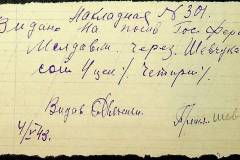 Накладная № 301.
Выдано на посев Госфере
Молдавии через Шевчука
сои 4 цен %. Четыри %.
Выдав
Принял Шев
4/V 43.